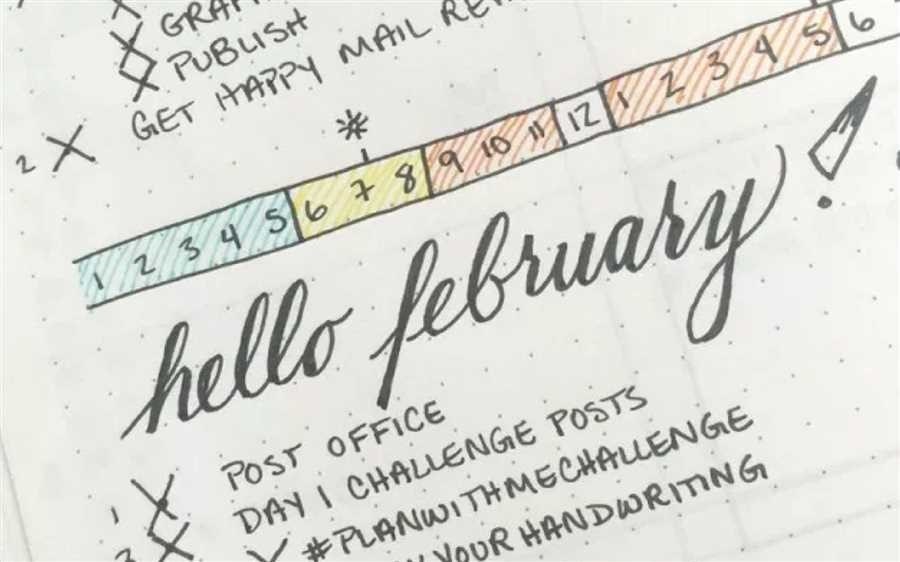 PUBLISH
2 X GET HAPPY MAIL
*
1 2 3 4 5 6 7 8 9 10 11 12 1 2 3 4 5 6
hello february!
1 X POST OFFICE
X DAY 1 CHALLENGE POSTS
#PLANWITHMECHALLENGE
YOUR HANDWRITING